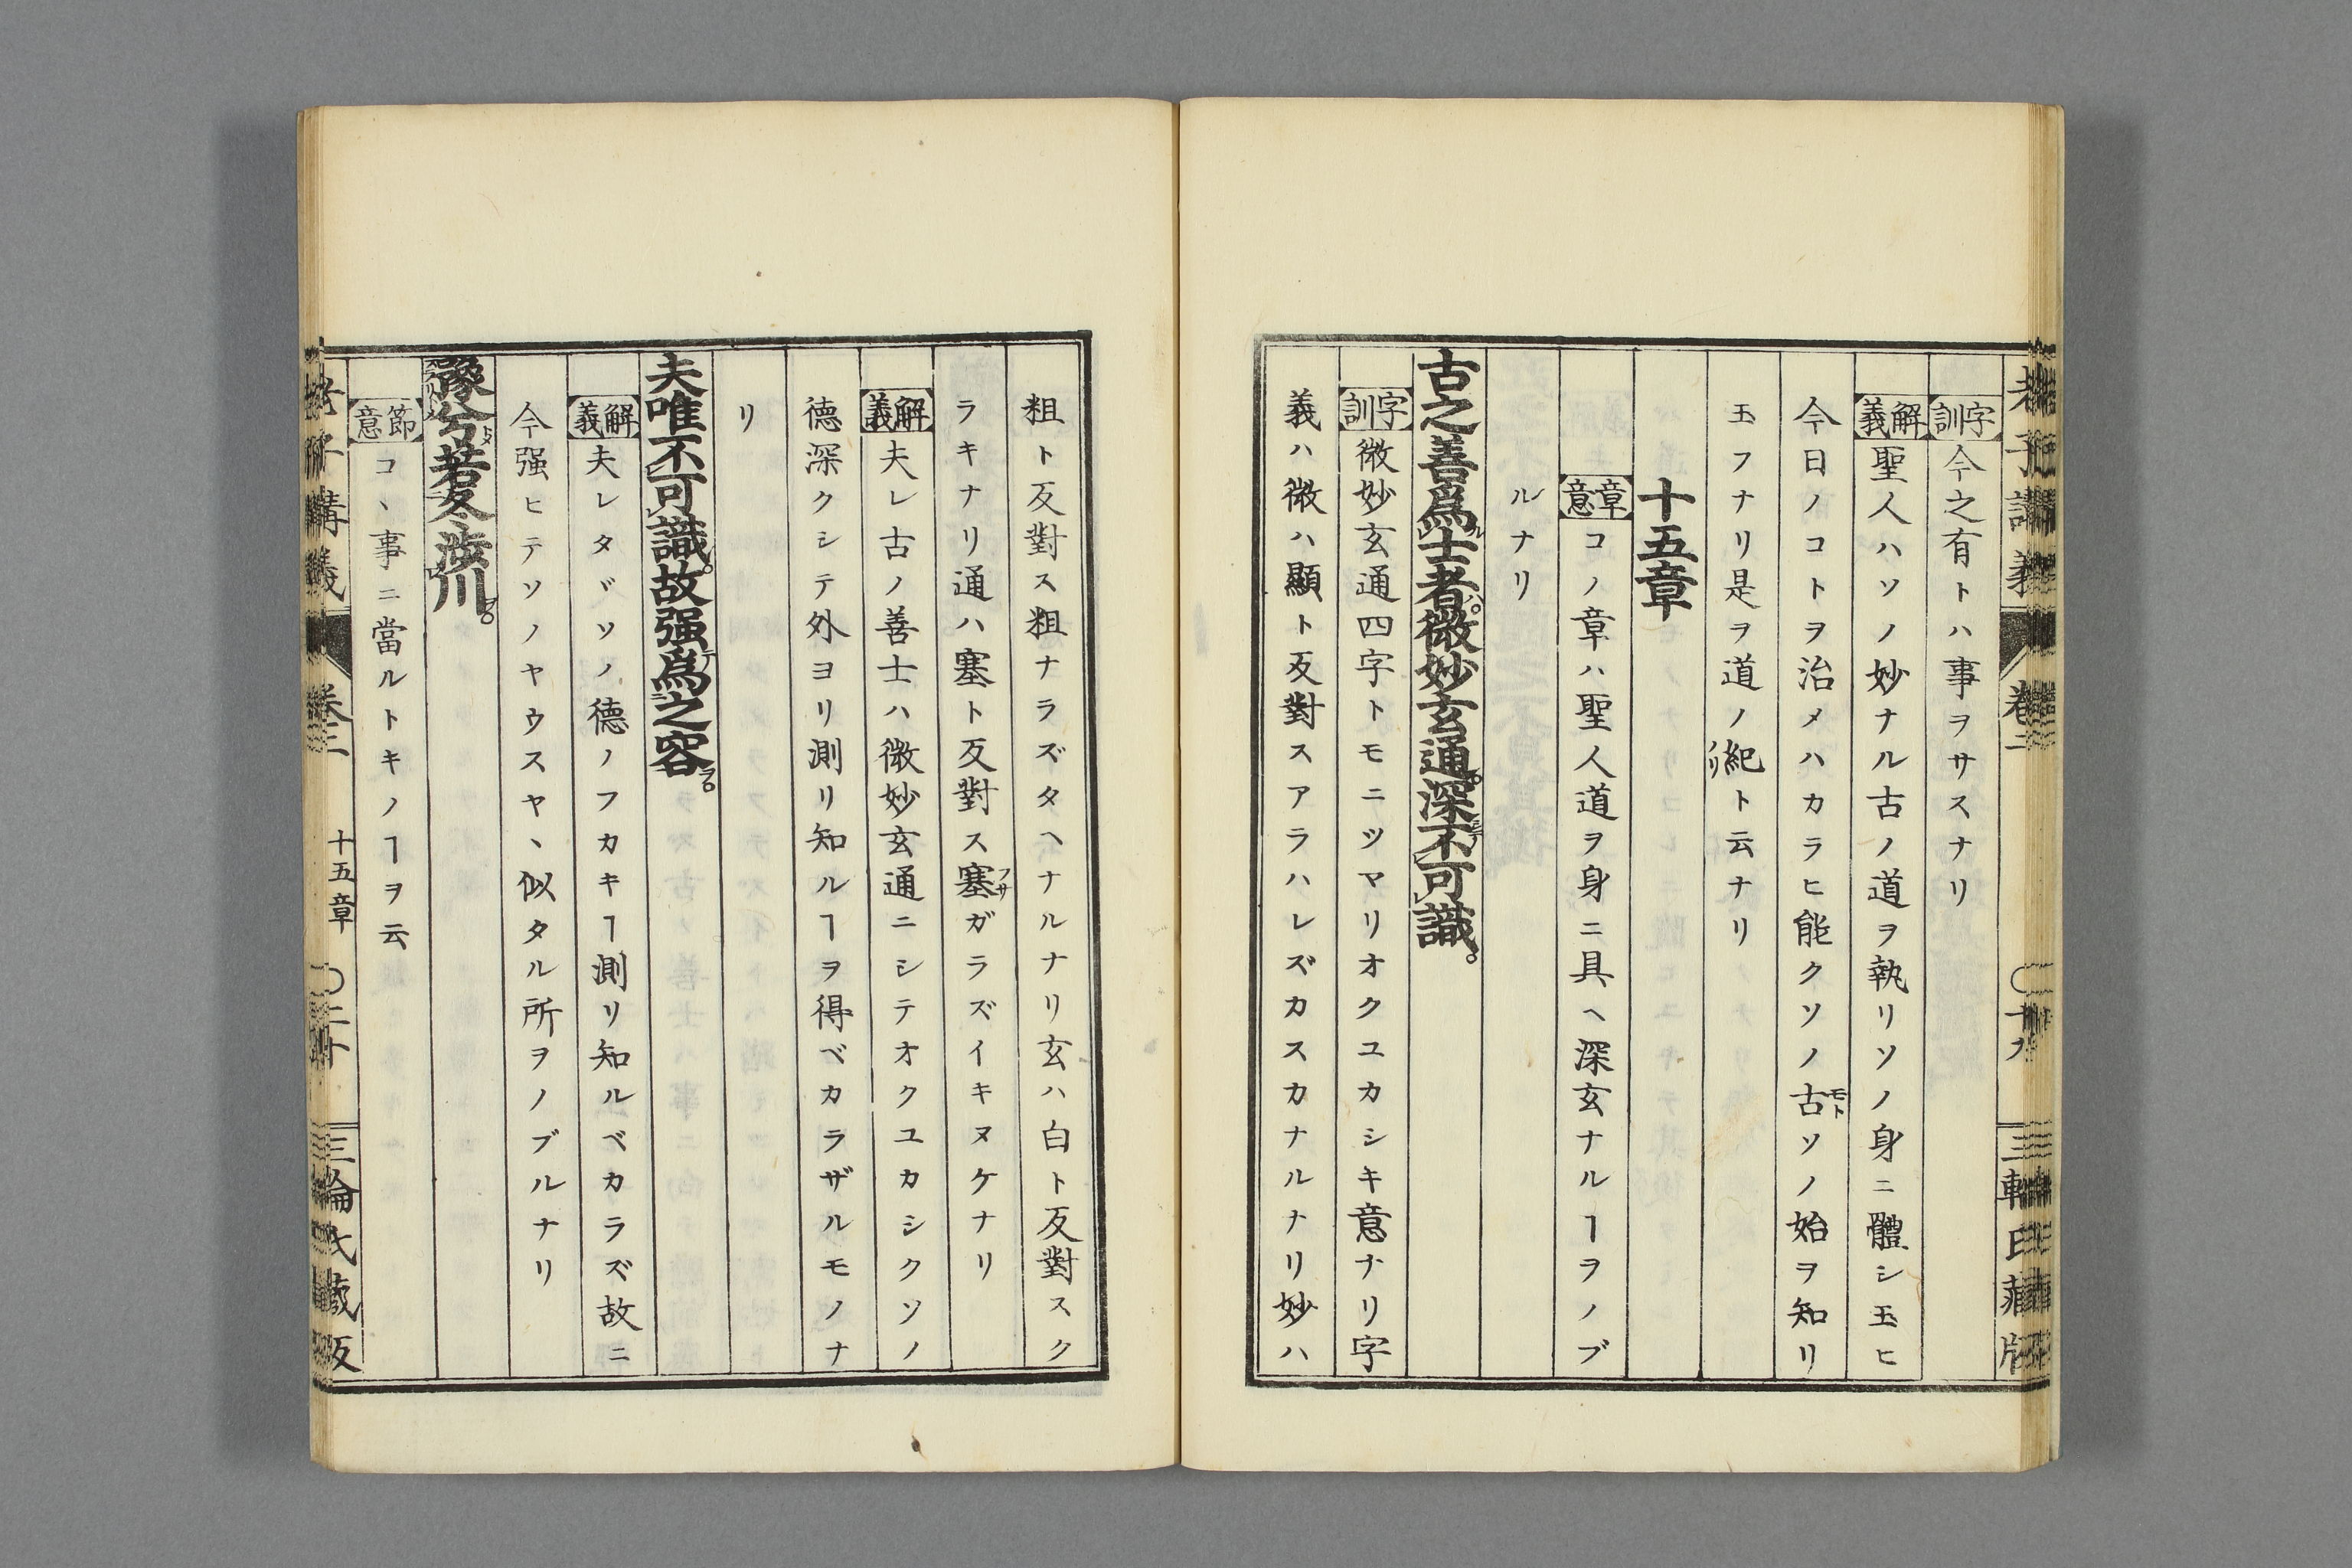 老子講義 卷二 〇十九 三輪氏藏版
字訓 今之有トハ事ヲサスナリ
解義 聖人ハソノ妙ナル古ノ道ヲ執リソノ身ニ體シ玉ヒ
今日ノコトヲ治メハカラヒ能クソノ古モトソノ始ヲ知リ
玉フナリ是ヲ道ノ紀ノリト云ナリ
十五章
章意 コノ章ハ聖人道ヲ身ニ具ヘ深玄ナルヿヲノブ
ルナリ
古之善爲ル士者ハ。微妙玄通。深不可識。
字訓 微妙玄通四字トモニツマリオクユカシキ意ナリ字
義ハ微ハ顯ト反對スアラハレズカスカナルナリ妙ハ
粗ト反對ス粗ナラズタヘナルナリ玄ハ白ト反對スク
ラキナリ通ハ塞ト反對ス塞フサガラズイキヌケナリ
解義 夫レ古ノ善士ハ微妙玄通ニシテオクユカシクソノ
德深クシテ外ヨリ測リ知ルヿヲ得ベカラザルモノナ
リ
夫唯不可識。故强爲之容ヲ。
解義 夫レタヾソノ德ノフカキヿ測リ知ルベカラズ故ニ
今强ヒテソノヤウスヤヽ似タル所ヲノブルナリ
豫兮若冬涉川ヲ。
節意 コヽ事ニ當ルトキノヿヲ云
老子講義 卷二 十五章 〇二十 三輪氏藏版